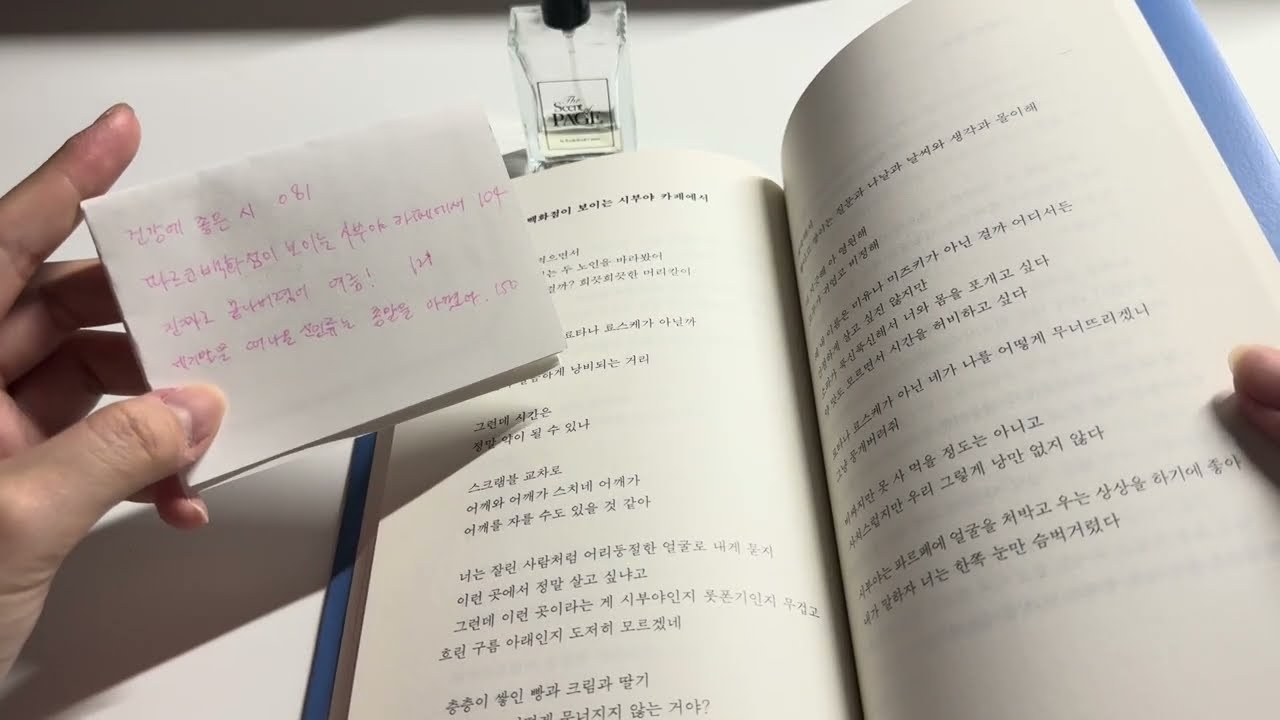 건강에 좋은 시 081
파르코 백화점이 보이는 시부야 카페에서 104
여름! 129
종말을 아꼈어. 150
The
Scent of
PAGE
백화점이 보이는 시부야 카페에서
두 노인을 바라봤어
희끗희끗한 머리칼이
료타나 료스케가 아닐까
낭비되는 거리
그런데 시간은
정말 약이 될 수 있나
스크램블 교차로
어깨와 어깨가 스치네 어깨가
어깨를 자를 수도 있을 것 같아
너는 잘린 사람처럼 어리둥절한 얼굴로 내게 묻지
이런 곳에서 정말 살고 싶냐고
그런데 이런 곳이라는 게 시부야인지 롯폰기인지 무겁고
흐린 구름 아래인지 도저히 모르겠네
층층이 쌓인 빵과 크림과 딸기
무너지지 않는 거야?
질문과 나날과 날씨와 생각과 몰이해
영원해
비정해
이름은 미유나 미즈키가 아닌 걸까 어디서든
살고 싶진 않지만
푹신푹신해서 너와 몸을 포개고 싶다
모르면서 시간을 허비하고 싶다
료스케가 아닌 네가 나를 어떻게 무너뜨리겠니
그냥 뭉개버려줘
비싸지만 못 사 먹을 정도는 아니고
사치스럽지만 우리 그렇게 낭만 없지 않다
시부야는 파르페에 얼굴을 처박고 우는 상상을 하기에 좋아
내가 말하자 너는 한쪽 눈만 슴벅거렸다